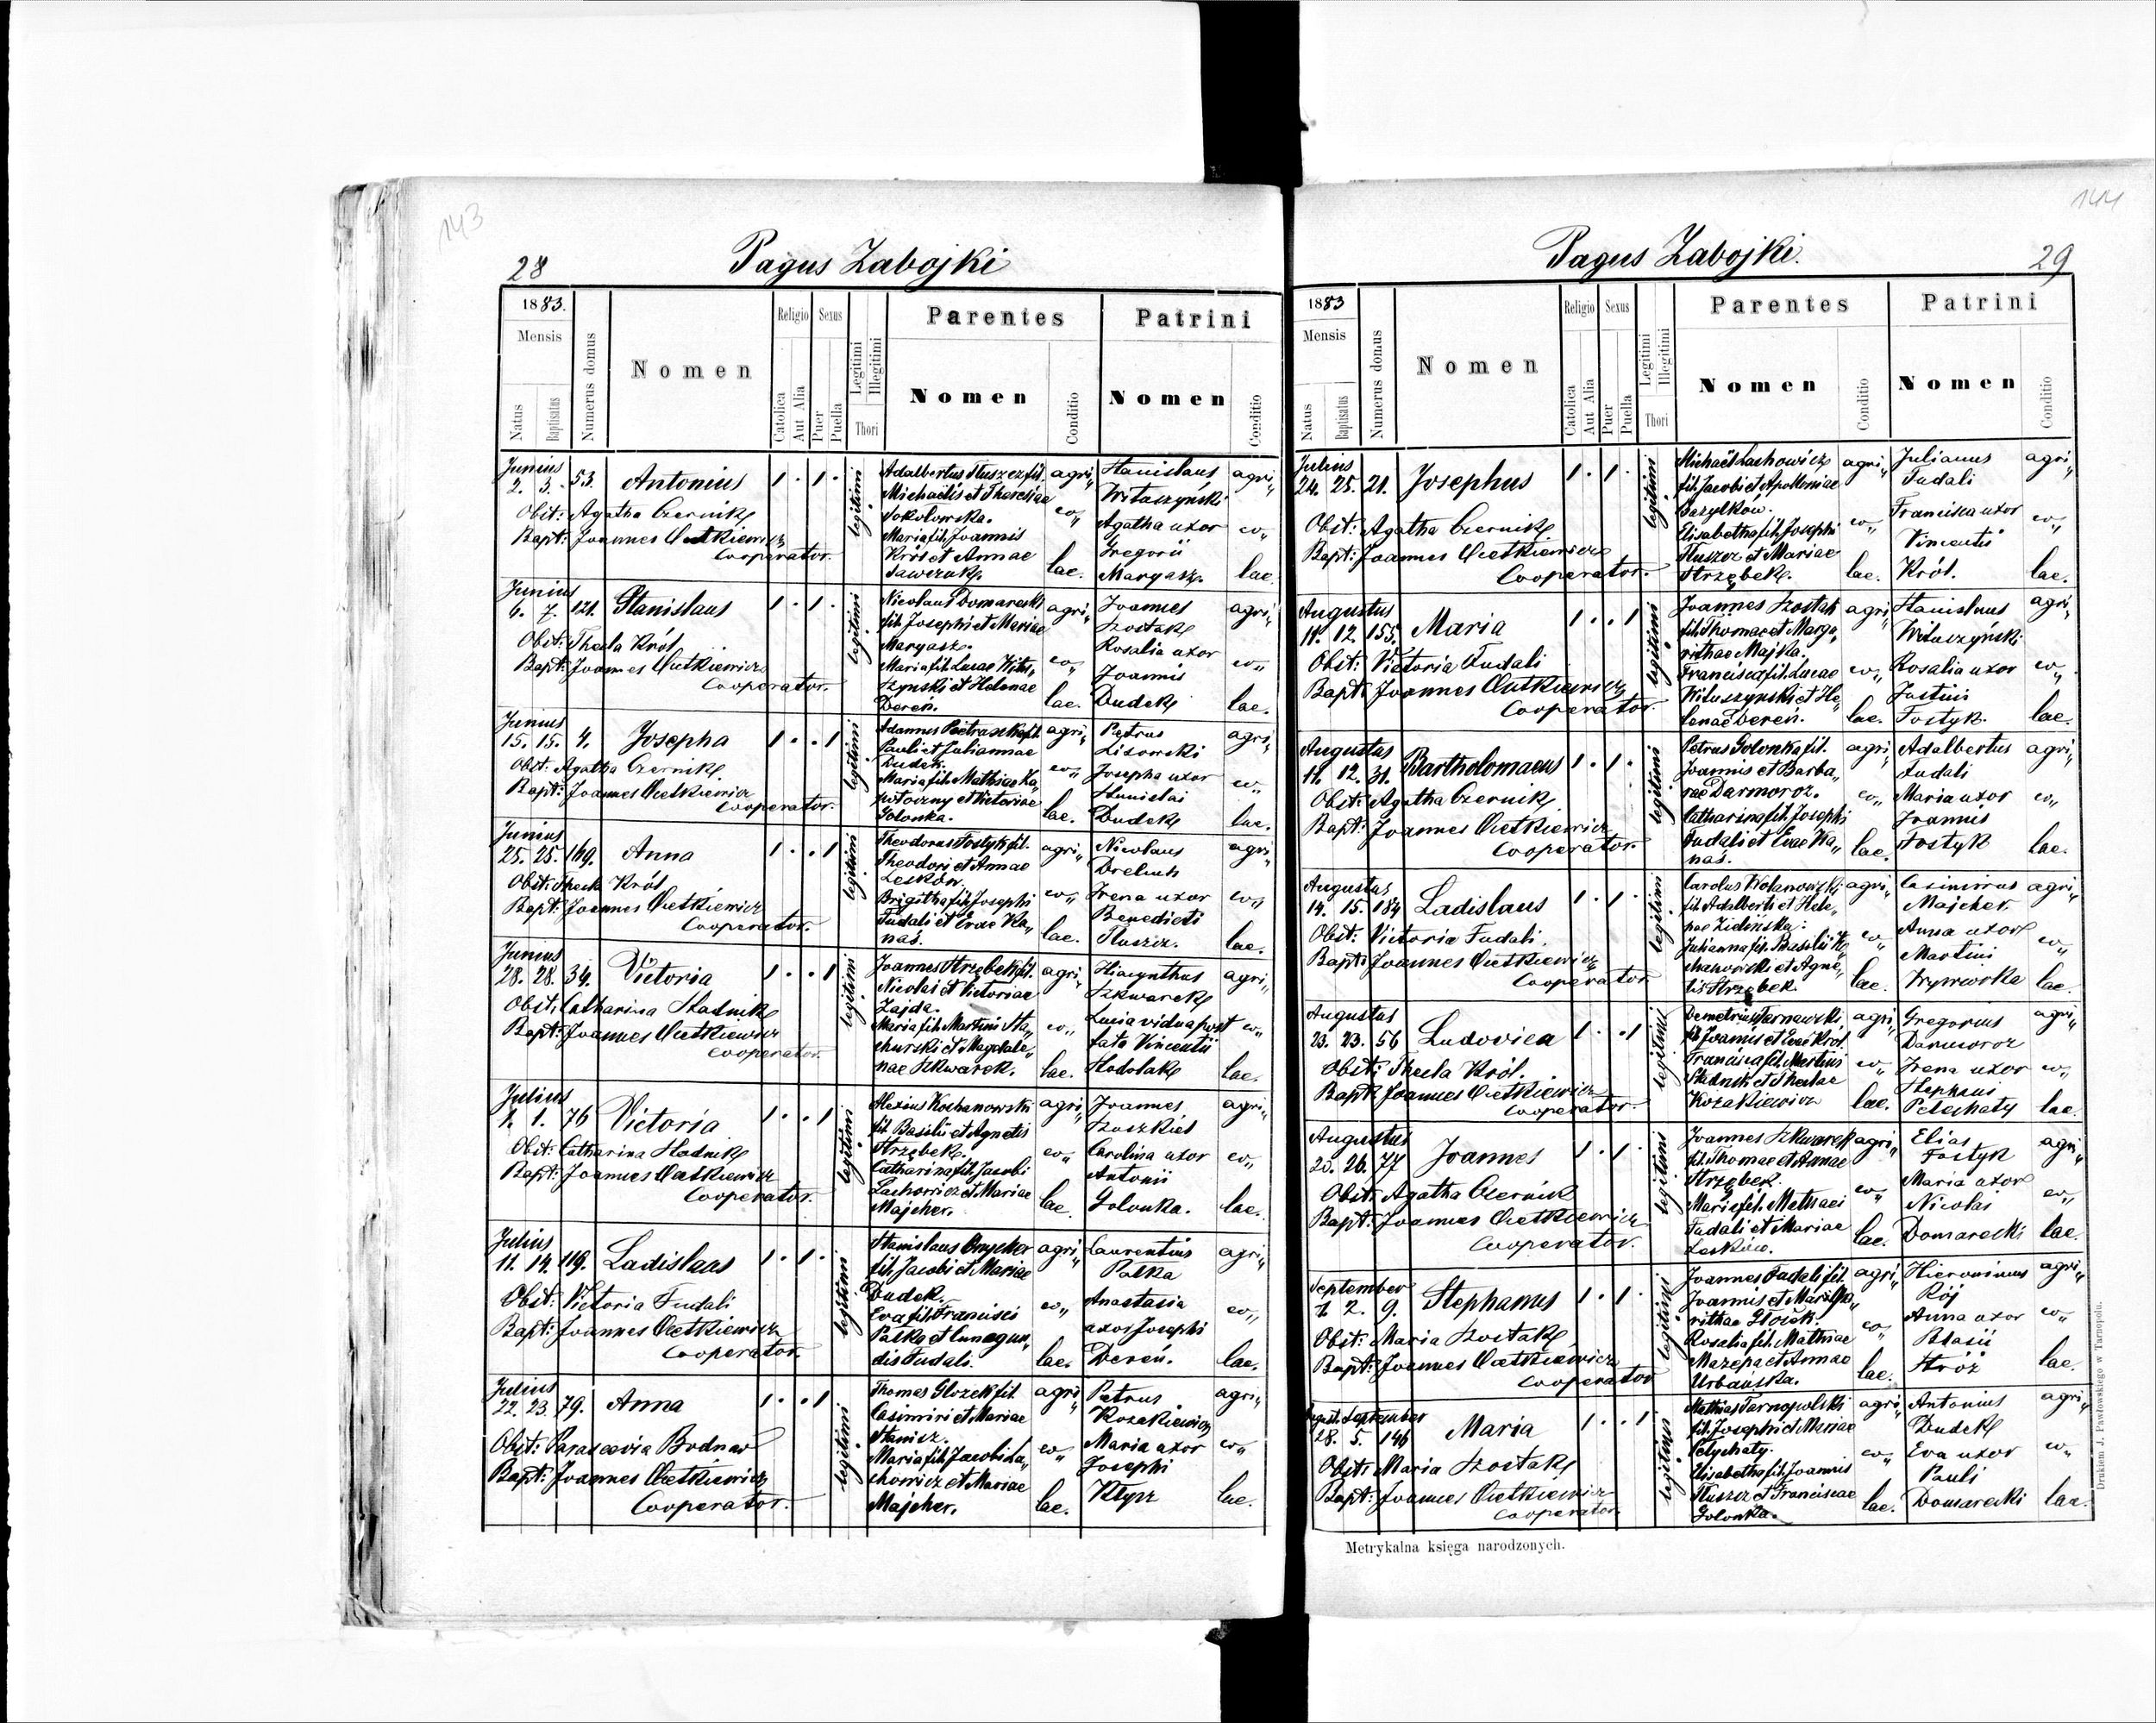 143
28
Pagus Zabojki
1883.
Mensis
Natus
Baptisatus
Numerus domus
Nomen
Religio
Catholica
Aut Alia
Sexus
Puer
Puella
Legitimi
Illegitimi
Thori
Parentes
Nomen
Conditio
Patrini
Nomen
Conditio
Junius
2. 3. 53. Antonius 1 . 1 .
Obst: Agatha Czernik
Bapt: Joannes
Cooperator.
legitimi
Adalbertus Tłuszcz fil.
Michaëlis et Theresiae
Sokolowska.
Maria fil. Joannis
Król et Annae
Sawczuk.
agri„
co„
lae.
Stanislaus
Wituszyński
Agatha uxor
Gregorii
Margasz.
agri„
co„
lae.
Junius
6. 7. 121. Stanislaus 1 . 1 .
Obst: Thecla Król
Bapt: Joannes
Cooperator.
legitimi
Nicolaus Domarecki
fil. Josephi et Mariae
Margasz.
Maria fil. Lucae Witu„
szynski et Helenae
Dereń.
agri„
co„
lae.
Joannes
Szostak
Rosalia uxor
Joannis
Dudek
agri„
co„
lae.
Junius
15. 15. 4. Josepha 1 . . 1
Obst: Agatha Czernik.
Bapt: Joannes
Cooperator.
legitimi
Adamus Pietraszek fil.
Pauli et Juliannae
Dudek.
Maria fil. Mathiae Ka„
potoczny et Victoriae
Golonka.
agri„
co„
lae.
Petrus
Lisowski
Josepha uxor
Stanislai
Dudek
agri„
co„
lae.
Junius
25. 25. 169. Anna 1 . . 1
Obst: Thecla Król
Bapt: Joannes
Cooperator.
legitimi
Theodorus Fostyk fil.
Theodori et Annae
Leskow.
Brigitha fil. Josephi
Fudali et Evae Ka„
naś.
agri„
co„
lae.
Nicolaus
Dreluch
Irena uxor
Benedicti
Tłuszcz.
agri„
co„
lae.
Junius
28. 28. 34. Victoria 1 . . 1
Obst: Catharina Stadnik
Bapt: Joannes
Cooperator.
legitimi
Joannes Strzębek fil.
Nicolai et Victoriae
Zajda.
Maria fil. Martini Sta„
churski et Magdale„
nae Skwarek.
agri„
co„
lae.
Hiacynthus
Skwarek
Lucia vidua post
fata Vincentii
Stodolak
agri„
co„
lae.
Julius
1. 1. 76 Victoria 1 . . 1
Obst: Catharina Stadnik
Bapt: Joannes
Cooperator.
legitimi
Alexius Kochanowski
fil. Basilii et Agnetis
Strzębek.
Catharina fil. Jacobi
Lachowicz et Mariae
Majcher.
agri„
co„
lae
Joannes
Carolina uxor
Antonii
Golonka.
agri„
co„
lae.
Julius
11. 14. 119. Ladislaus 1 . 1 .
Obst: Victoria Fudali
Bapt: Joannes
Cooperator.
legitimi
Stanislaus
fil. Jacobi et Mariae
Dudek.
Eva fil. Francisci
Palka et Cunegun„
dis Fudali.
agri„
co„
lae.
Laurentius
Palka
Anastasia
uxor Josephi
Dereń.
agri„
co„
lae.
Julius
22. 23. 79. Anna 1 . . 1
Obst: Parascevia Bodnar
Bapt: Joannes
Cooperator.
legitimi
Thomas Głozek fil.
Casimiri et Mariae
Stanisz.
Maria fil. Jacobi La„
chowicz et Mariae
Majcher.
agri„
co„
lae.
Petrus
Kozakiewicz
Maria uxor
Josephi
Kłysz
agri„
co„
lae.
144
Pagus Zabojki.
29
1883
Mensis
Natus
Baptisatus
Numerus domus
Nomen
Religio
Catholica
Aut Alia
Sexus
Puer
Puella
Legitimi
Illegitimi
Thori
Parentes
Nomen
Conditio
Patrini
Nomen
Conditio
Julius
24. 25. 21. Josephus 1 . 1 .
Obst: Agatha Czernik
Bapt: Joannes
Cooperator.
legitimi
Michaël Lachowicz
fil. Jacobi et Apolloniae
Bazylków.
Elisabetha fil. Josephi
Tłuszcz et Mariae
Strzębek.
agri„
co„
lae.
Julianus
Fudali
Francisca uxor
Vincentii
Król.
agri„
co„
lae.
Augustus
11. 12. 155. Maria 1 . . 1
Obst: Victoria Fudali
Bapt: Joannes
Cooperator.
legitimi
Joannes Szostak
fil. Thomae et Marga„
rithae Majka.
Francisca fil. Lucae
Wituszynski et He„
lenae Dereń.
agri„
co„
lae.
Stanislaus
Wituszyński
Rosalia uxor
Justini
Fostyk.
agri„
co„
lae.
Augustus
11. 12. 31. Bartholomaeus 1 . 1 .
Obst: Agatha Czernik
Bapt: Joannes
Cooperator.
legitimi
Petrus Golonka fil.
Joannis et Barba„
rae Darmoroz.
Catharina fil. Josephi
Fudali et Evae Ka„
naś.
agri„
co„
lae.
Adalbertus
Fudali
Maria uxor
Joannis
Fostyk
agri„
co„
lae.
Augustus
14. 15. 184 Ladislaus 1 . 1 .
Obst: Victoria Fudali.
Bapt: Joannes
Cooperator
legitimi
Carolus Wolanowski
fil. Adalberti et Hele„
nae Zielińska.
Julianna fil. Basilii Ko„
chanowski et Agne„
tis Strzębek.
agri„
co„
lae.
Casimirus
Majcher.
Anna uxor
Martini
agri„
co„
lae.
Augustus
23. 23. 56 Ludovica 1 . . 1
Obst: Thecla Król.
Bapt: Joannes
Cooperator.
legitimi
Demetrius Tarnawski,
fil. Joannis et Evae Król.
Francisca fil. Martini
Stadnik et Theclae
Kozakiewicz
agri„
co„
lae.
Gregorius
Darmoroz
Irena uxor
Stephani
Petechaty
agri„
co„
lae.
Augustus
20. 26. 77 Joannes 1 . 1 .
Obst: Agatha Czernik
Bapt: Joannes
Cooperator.
legitimi
Joannes Skwarek
fil. Thomae et Annae
Strzębek.
Maria fil. Mathaei
Fudali et Mariae
Leskow.
agri„
co„
lae.
Elias
Fostyk
Maria uxor
Nicolai
Domarecki
agri„
co„
lae.
September
1. 2. 9. Stephanus 1 . 1 .
Obst: Maria Szostak
Bapt: Joannes
Cooperator
legitimi
Joannes Fudali fil.
Joannis et Marga„
rithae
Rosalia fil. Mathiae
Mazepa et Annae
Urbańska.
agri„
co„
lae.
Hieronimus
Rój
Anna uxor
Blasii
Stróż
agri„
co„
lae.
August. September
28. 5. 146 Maria 1 . . 1
Obst: Maria Szostak
Bapt: Joannes
Cooperator.
legitimi
Mathias Tarnopolski
fil. Josephi et Mariae
Petychaty.
Elisabetha fil. Joannis
Tłuszcz et Franciscae
Golonka.
agri„
co„
lae.
Antonius
Dudek
Eva uxor
Pauli
Domarecki
agri„
co„
lae.
Metrykalna księga narodzonych.
Drukiem J. Pawłowskiego w Tarnopolu.